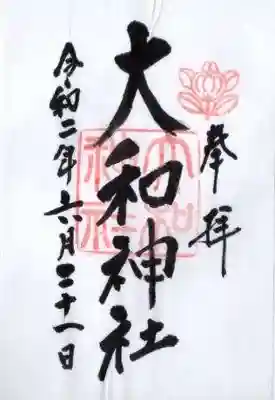 奉拝
大和神社
令和二年六月二十一日
大和神社